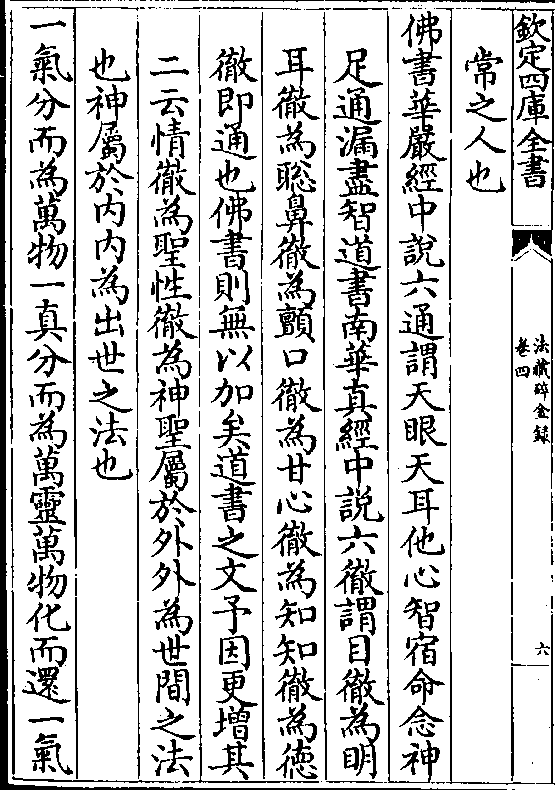 欽定四庫全書
法藏碎金録
卷四
六
常之人也
佛書華嚴經中說六通謂天眼天耳他心智宿命念神
足通漏盡智道書南華真經中説六徹謂目徹為明
耳徹為聡鼻徹為顫口徹為甘心徹為知知徹為徳
徹即通也佛書則無以加矣道書之文予因更增其
二云情徹為聖性徹為神聖屬於外外為世間之法
也神屬於内内為出世之法也
一氣分而為萬物一真分而為萬靈萬物化而還一氣